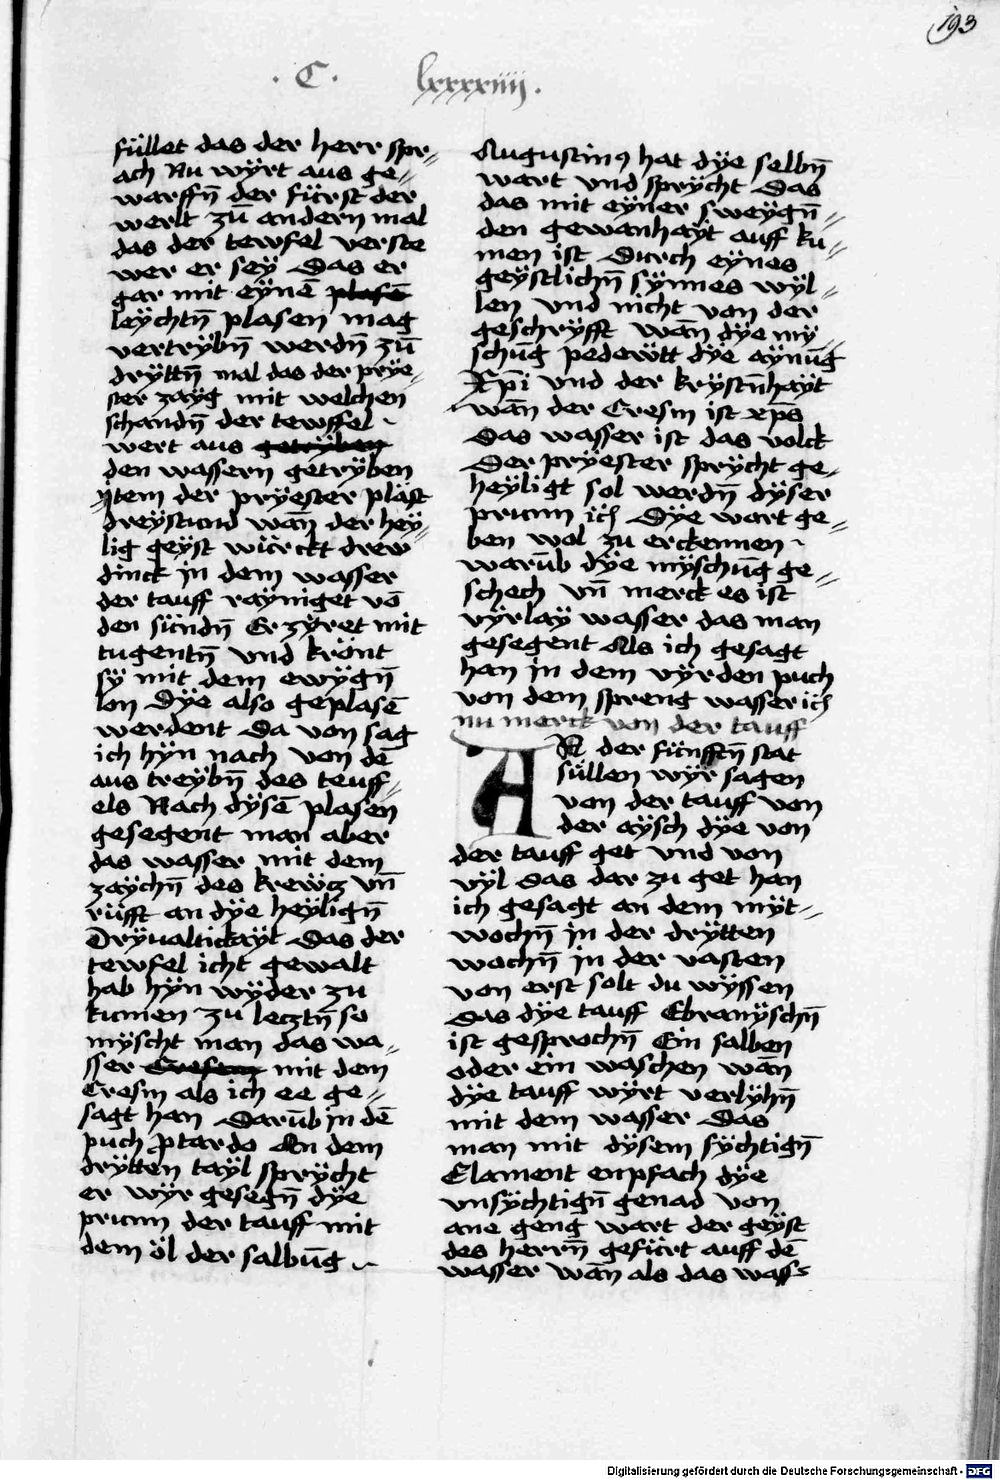 193
. C. lxxxxiiij.
füllet das der herr spr-
ach Nu wÿrt aus ge-
warffn̄ der fürst der
werlt zū andern mal
das der tewfel verste
wer er seÿ Das er
gar mit eÿnē plasē
leÿchtn̄ plasen mag
vertrÿbn̄ werdn̄ zū
drÿttn̄ mal das der prÿe-
ster zaÿg mit welchen
schandn̄ der tewffel
wert aus getrÿben
den wassern getrÿben
ÿtem der prÿester pläst
dreÿstund wān der heÿ-
lig geÿst würckt drew
dinck in dem wasser
der tauff raÿniget vō
den sündn̄ Er zÿret mit
tugentn̄ vnd krönt
sÿ mit dem ewÿgn̄
lon Dÿe also geplasē
werdent Da von sag
ich hÿn nach von dē
aus treÿbn̄ des teuff-
els Nach dÿsē plasen
gesegent man aber
das wasser mit dem
zaÿchn̄ des krewcz vn̄
rüfft an dÿe heÿlign̄
Drÿualtickaÿt Das der
tewfel icht gewalt
hab hÿn wÿder zu
kumen zu lecztn̄ so
mÿscht man das wa-
sser Cresem mit dem
Cresm als ich ee ge-
sagt han Darūb in dē
puch ptardo An dem
drÿtten taÿl sprÿcht
er wÿr gesegn̄ dÿe
prunn der tauff mit
dem öl der salbūg
Augustin9 hat dÿe selbn̄
wart vnd sprÿcht Das
das mit eÿner sweÿgn̄-
den gewanhaÿt auff ku-
men ist Durch eÿnes
geÿstlichn̄ sÿnnes wÿl-
len vnd nicht von der
geschrÿfft wān dÿe mÿ-
schūg pedewtt dÿe aÿnūg
Xp̄i vnd der krÿstn̄haÿt
wān der Cresm ist xp̄s
Das wasser ist das volck
Der prÿester sprÿcht ge-
heÿligt sol werdn̄ dÿser
prunn ich Dÿe wart ge-
ben wol zu erckennen
warūb dÿe mÿschūg ge-
schech vn̄ merck es ist
vÿrlaÿ wasser das man
gesegent Als ich gesagt
han in dem vÿrden puch
von dem spreng wasser ich
nu merck von der tauff
AN der fünfftn̄ stat
süllen wÿr sagen
von der tauff von
der aÿsch dÿe von
der tauff get vnd von
vÿl das dar zu get han
ich gesagt an dem mÿt-
wochn̄ in der drÿtten
wochn̄ in der vasten
von erst solt du wÿssen
Das dÿe tauff Ebranÿschn̄
ist gesprochn̄ Ein salben
oder ein waschen wān
dÿe tauff wÿrt verlÿhn̄
mit dem wasser Das
man mit dÿsem sÿchtign̄
Elament enpfach dÿe
vnsÿchtign̄ genad von
ane geng wart der geÿst
des herrn̄ gefürt auff dē
wasser wān als das wass
Digitalisierung gefördert durch die Deutsche Forschungsgemeinschaft - DFG